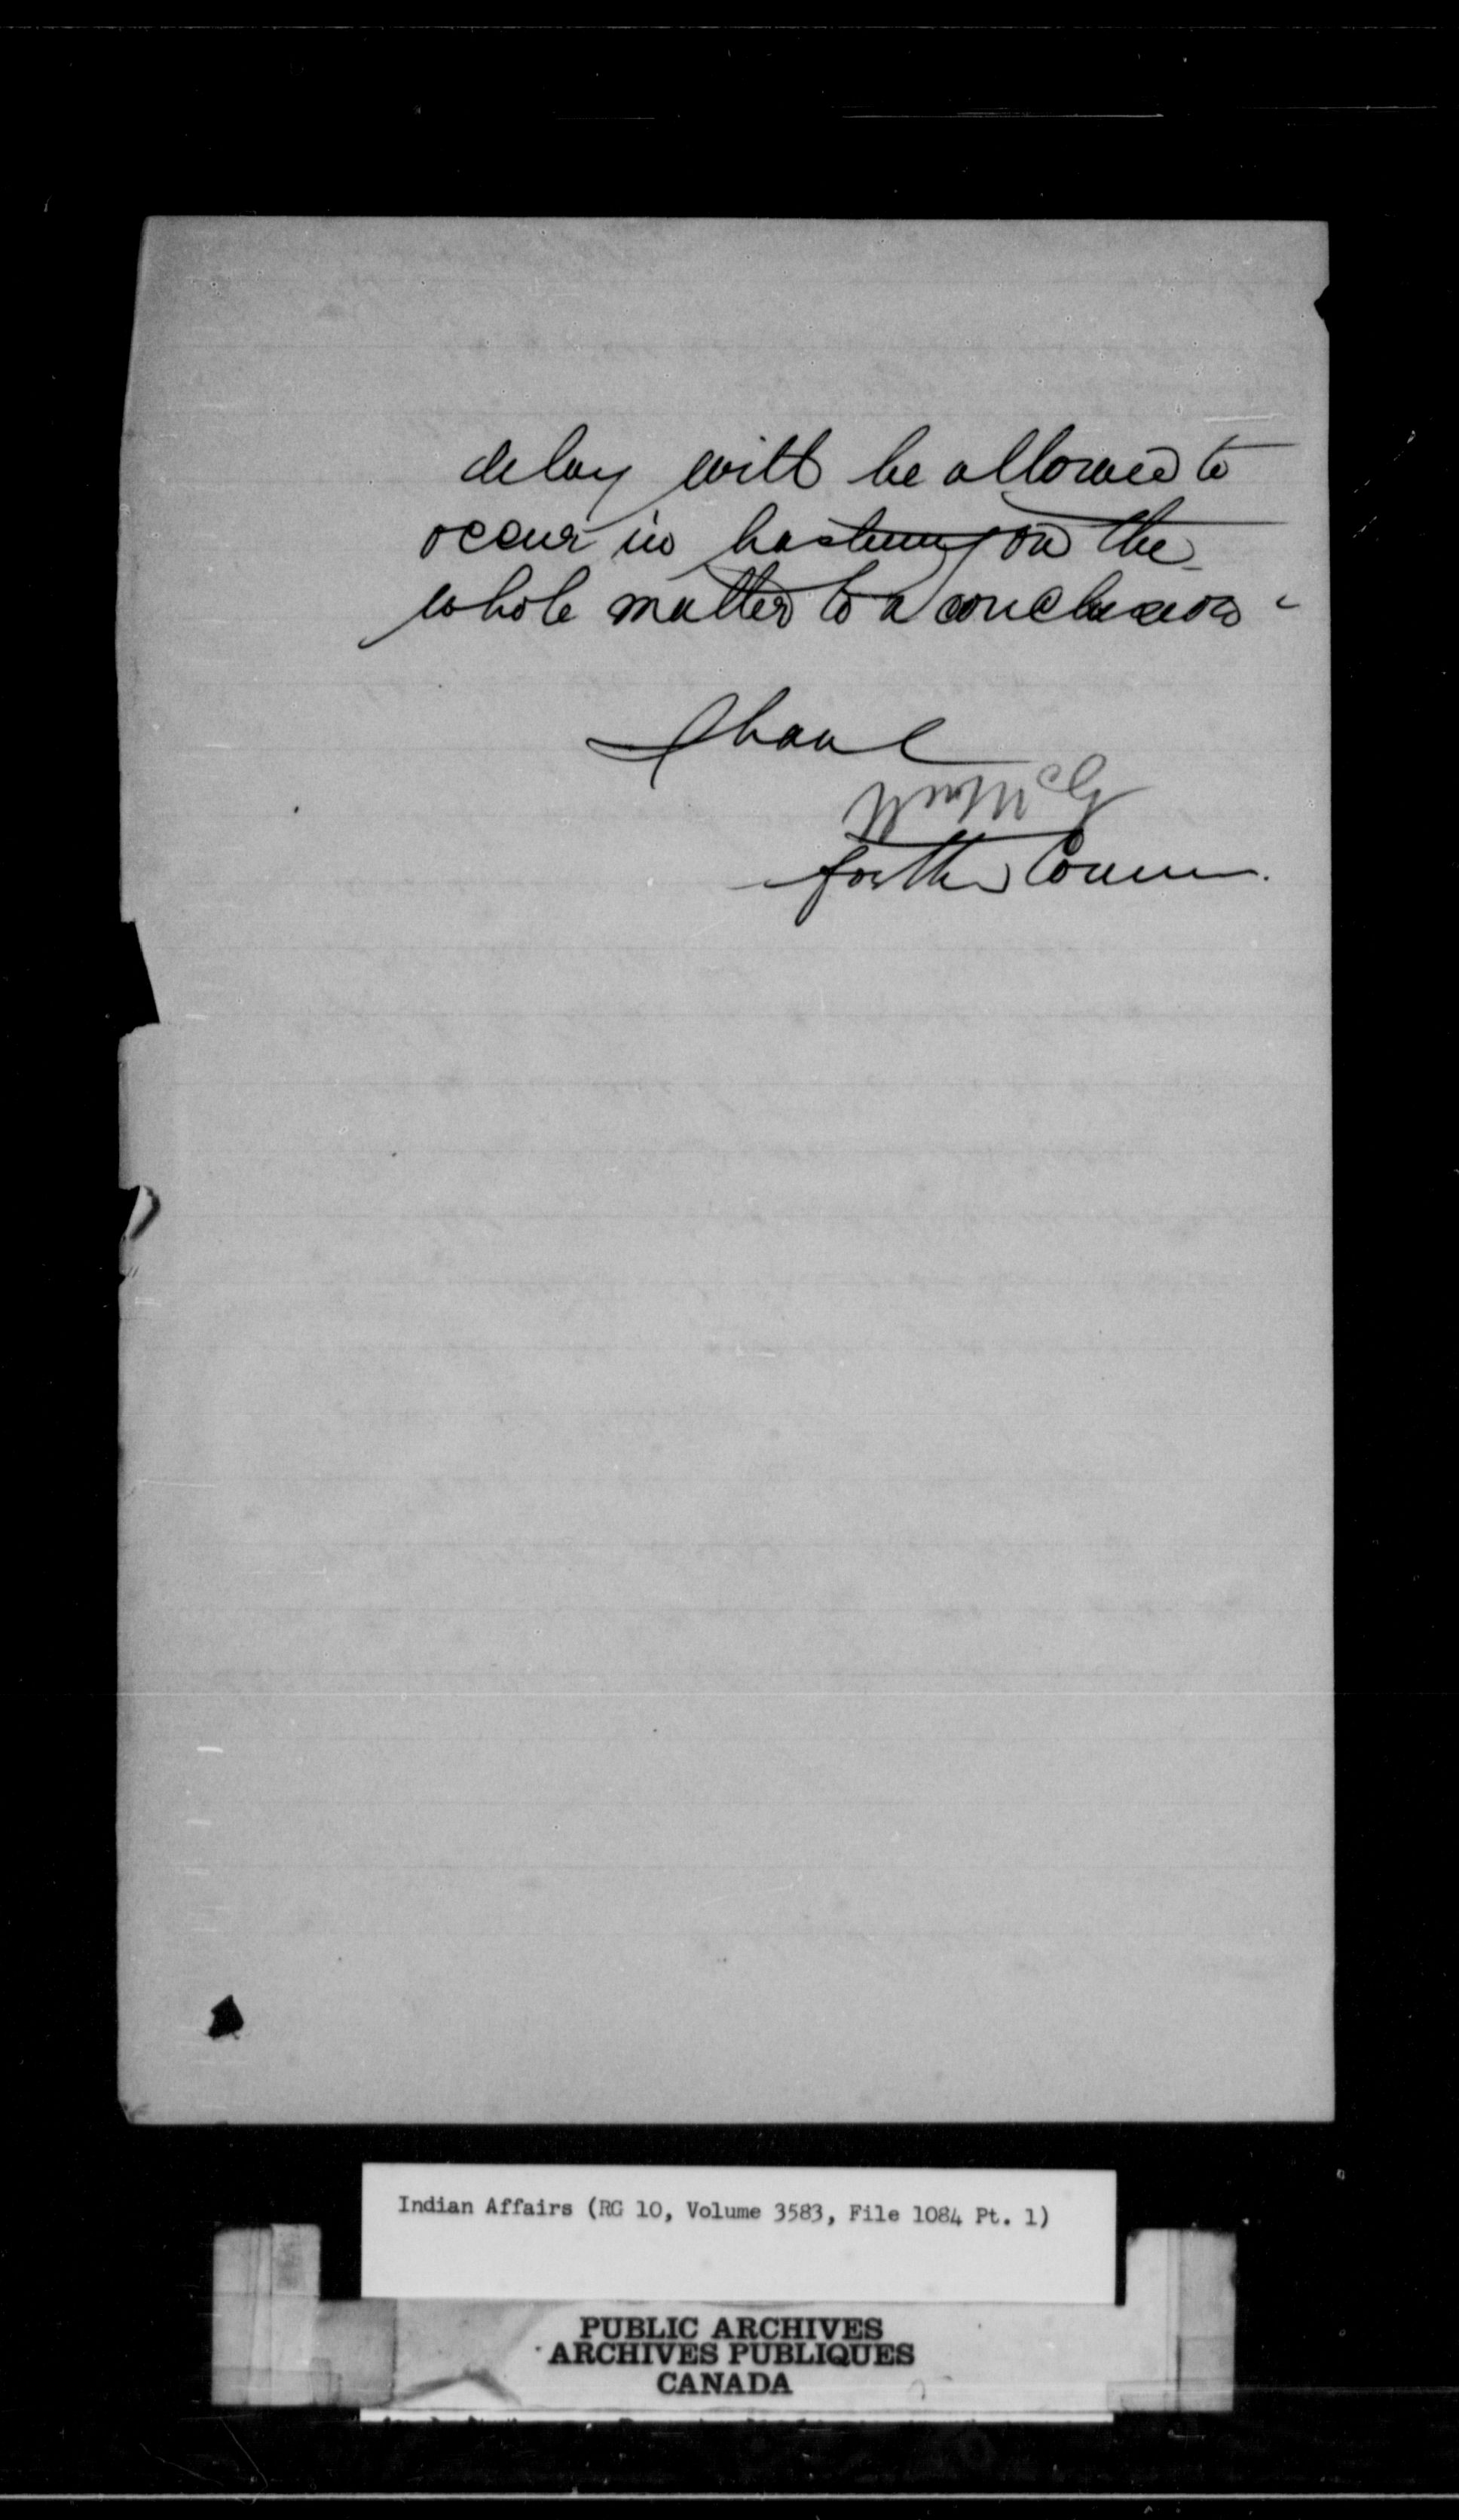 delay will be allowed to
occur in hastening on the
whole matter to a conclusion -
I have
for the Comm.
Indian Affairs (RG 10, Volume 3583, File 1084 Pt. 1)
PUBLIC ARCHIVES
ARCHIVES PUBLIQUES
CANADA